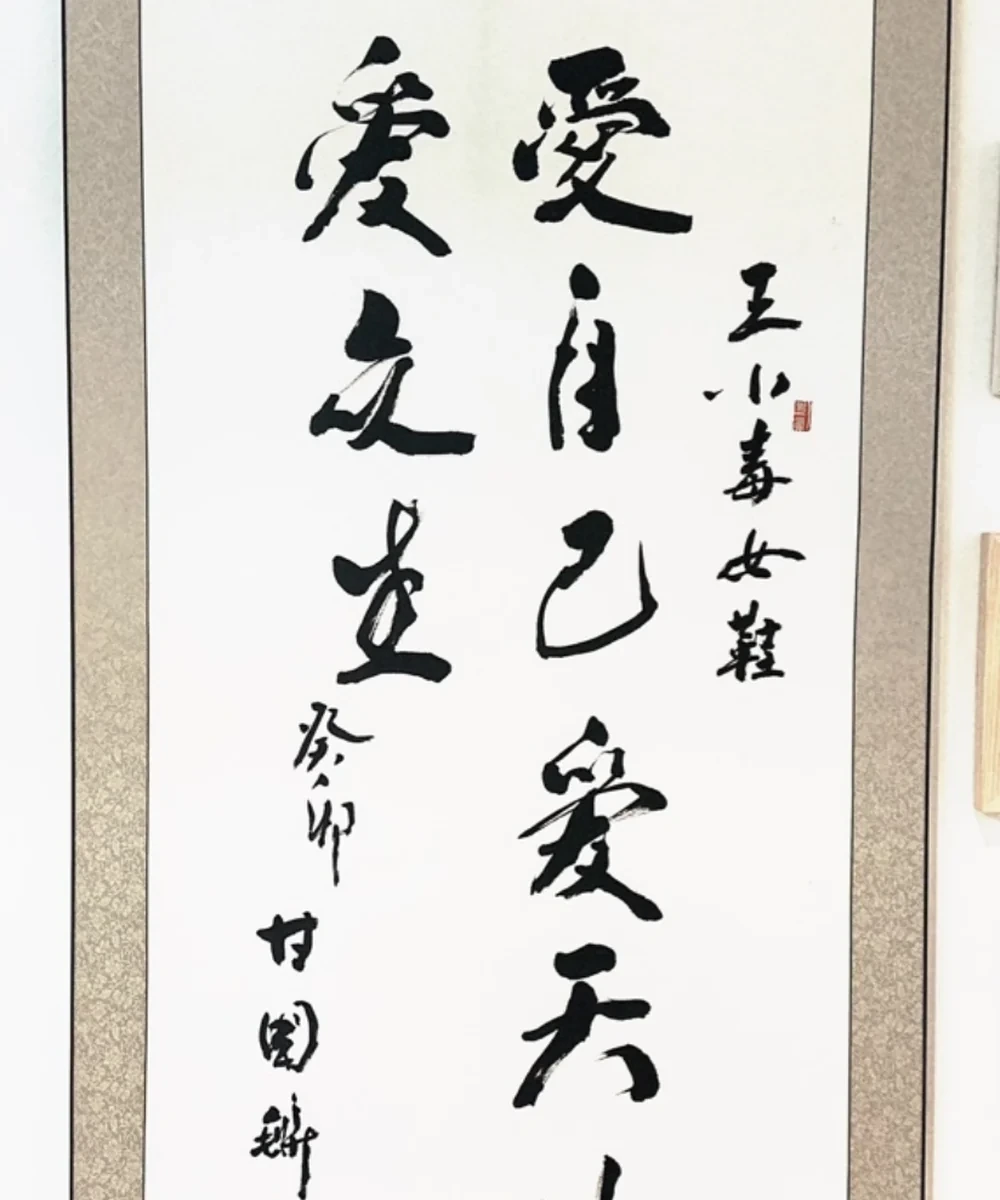 王小毒女鞋
愛自己爱天
爱众生
癸卯
甘国